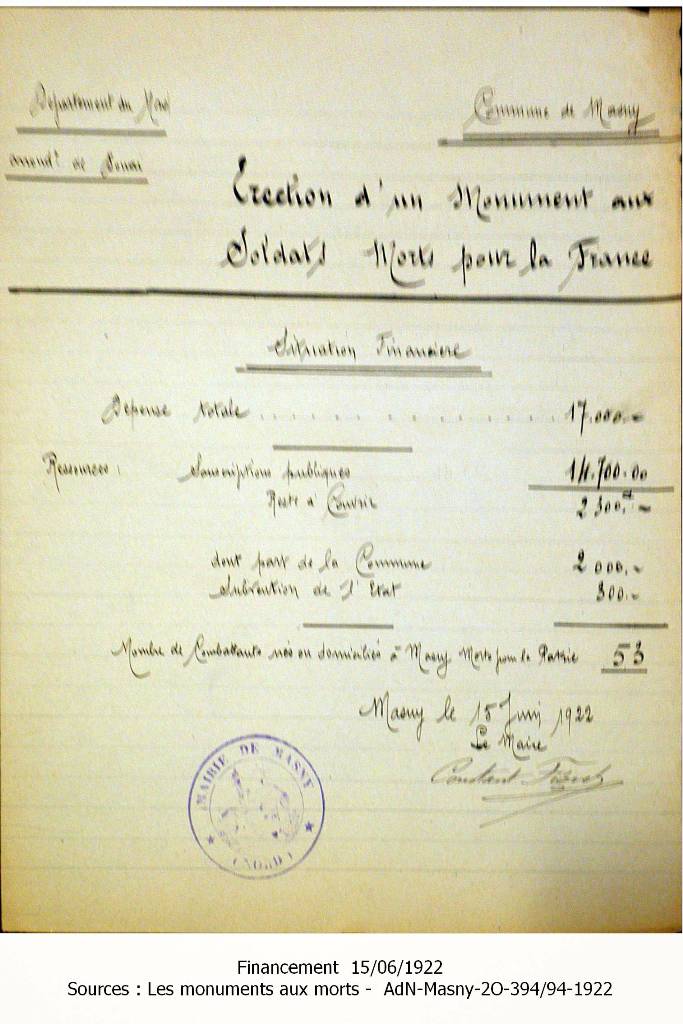 Département du Nord
Commune de Masny
arrondt de Douai
Erection d'un Monument aux
Soldats Morts pour la France
Situation Financière
Dépense totale .......... 17.000.-
Ressources : Souscriptions publiques 14.700.00
Reste à Couvrir 2 300.-
dont part de la Commune 2 000.-
Subvention de l'Etat 300.-
Nombre de Combattants nés ou domiciliés à Masny Morts pour la Patrie 53
Masny le 15 Juin 1922
Le Maire
Constant
MAIRIE DE MASNY
(NORD)
Financement 15/06/1922
Sources : Les monuments aux morts - AdN-Masny-2O-394/94-1922